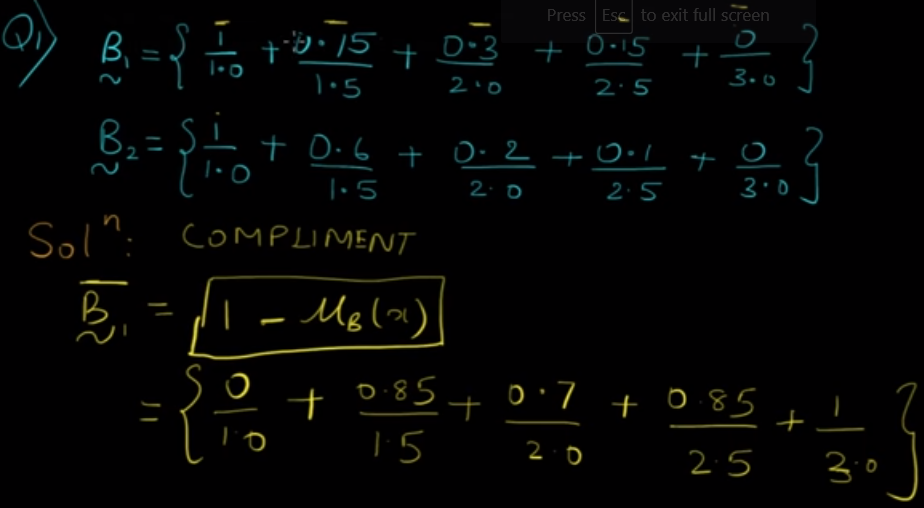 Press Esc to exit full screen
Q1) B1 = { 1/1.0 + 0.15/1.5 + 0.3/2.0 + 0.15/2.5 + 0/3.0 }
B2 = { 1/1.0 + 0.6/1.5 + 0.2/2.0 + 0.1/2.5 + 0/3.0 }
Solⁿ: COMPLIMENT
B̅1 = 1 - μB(x)
= { 0/1.0 + 0.85/1.5 + 0.7/2.0 + 0.85/2.5 + 1/3.0 }